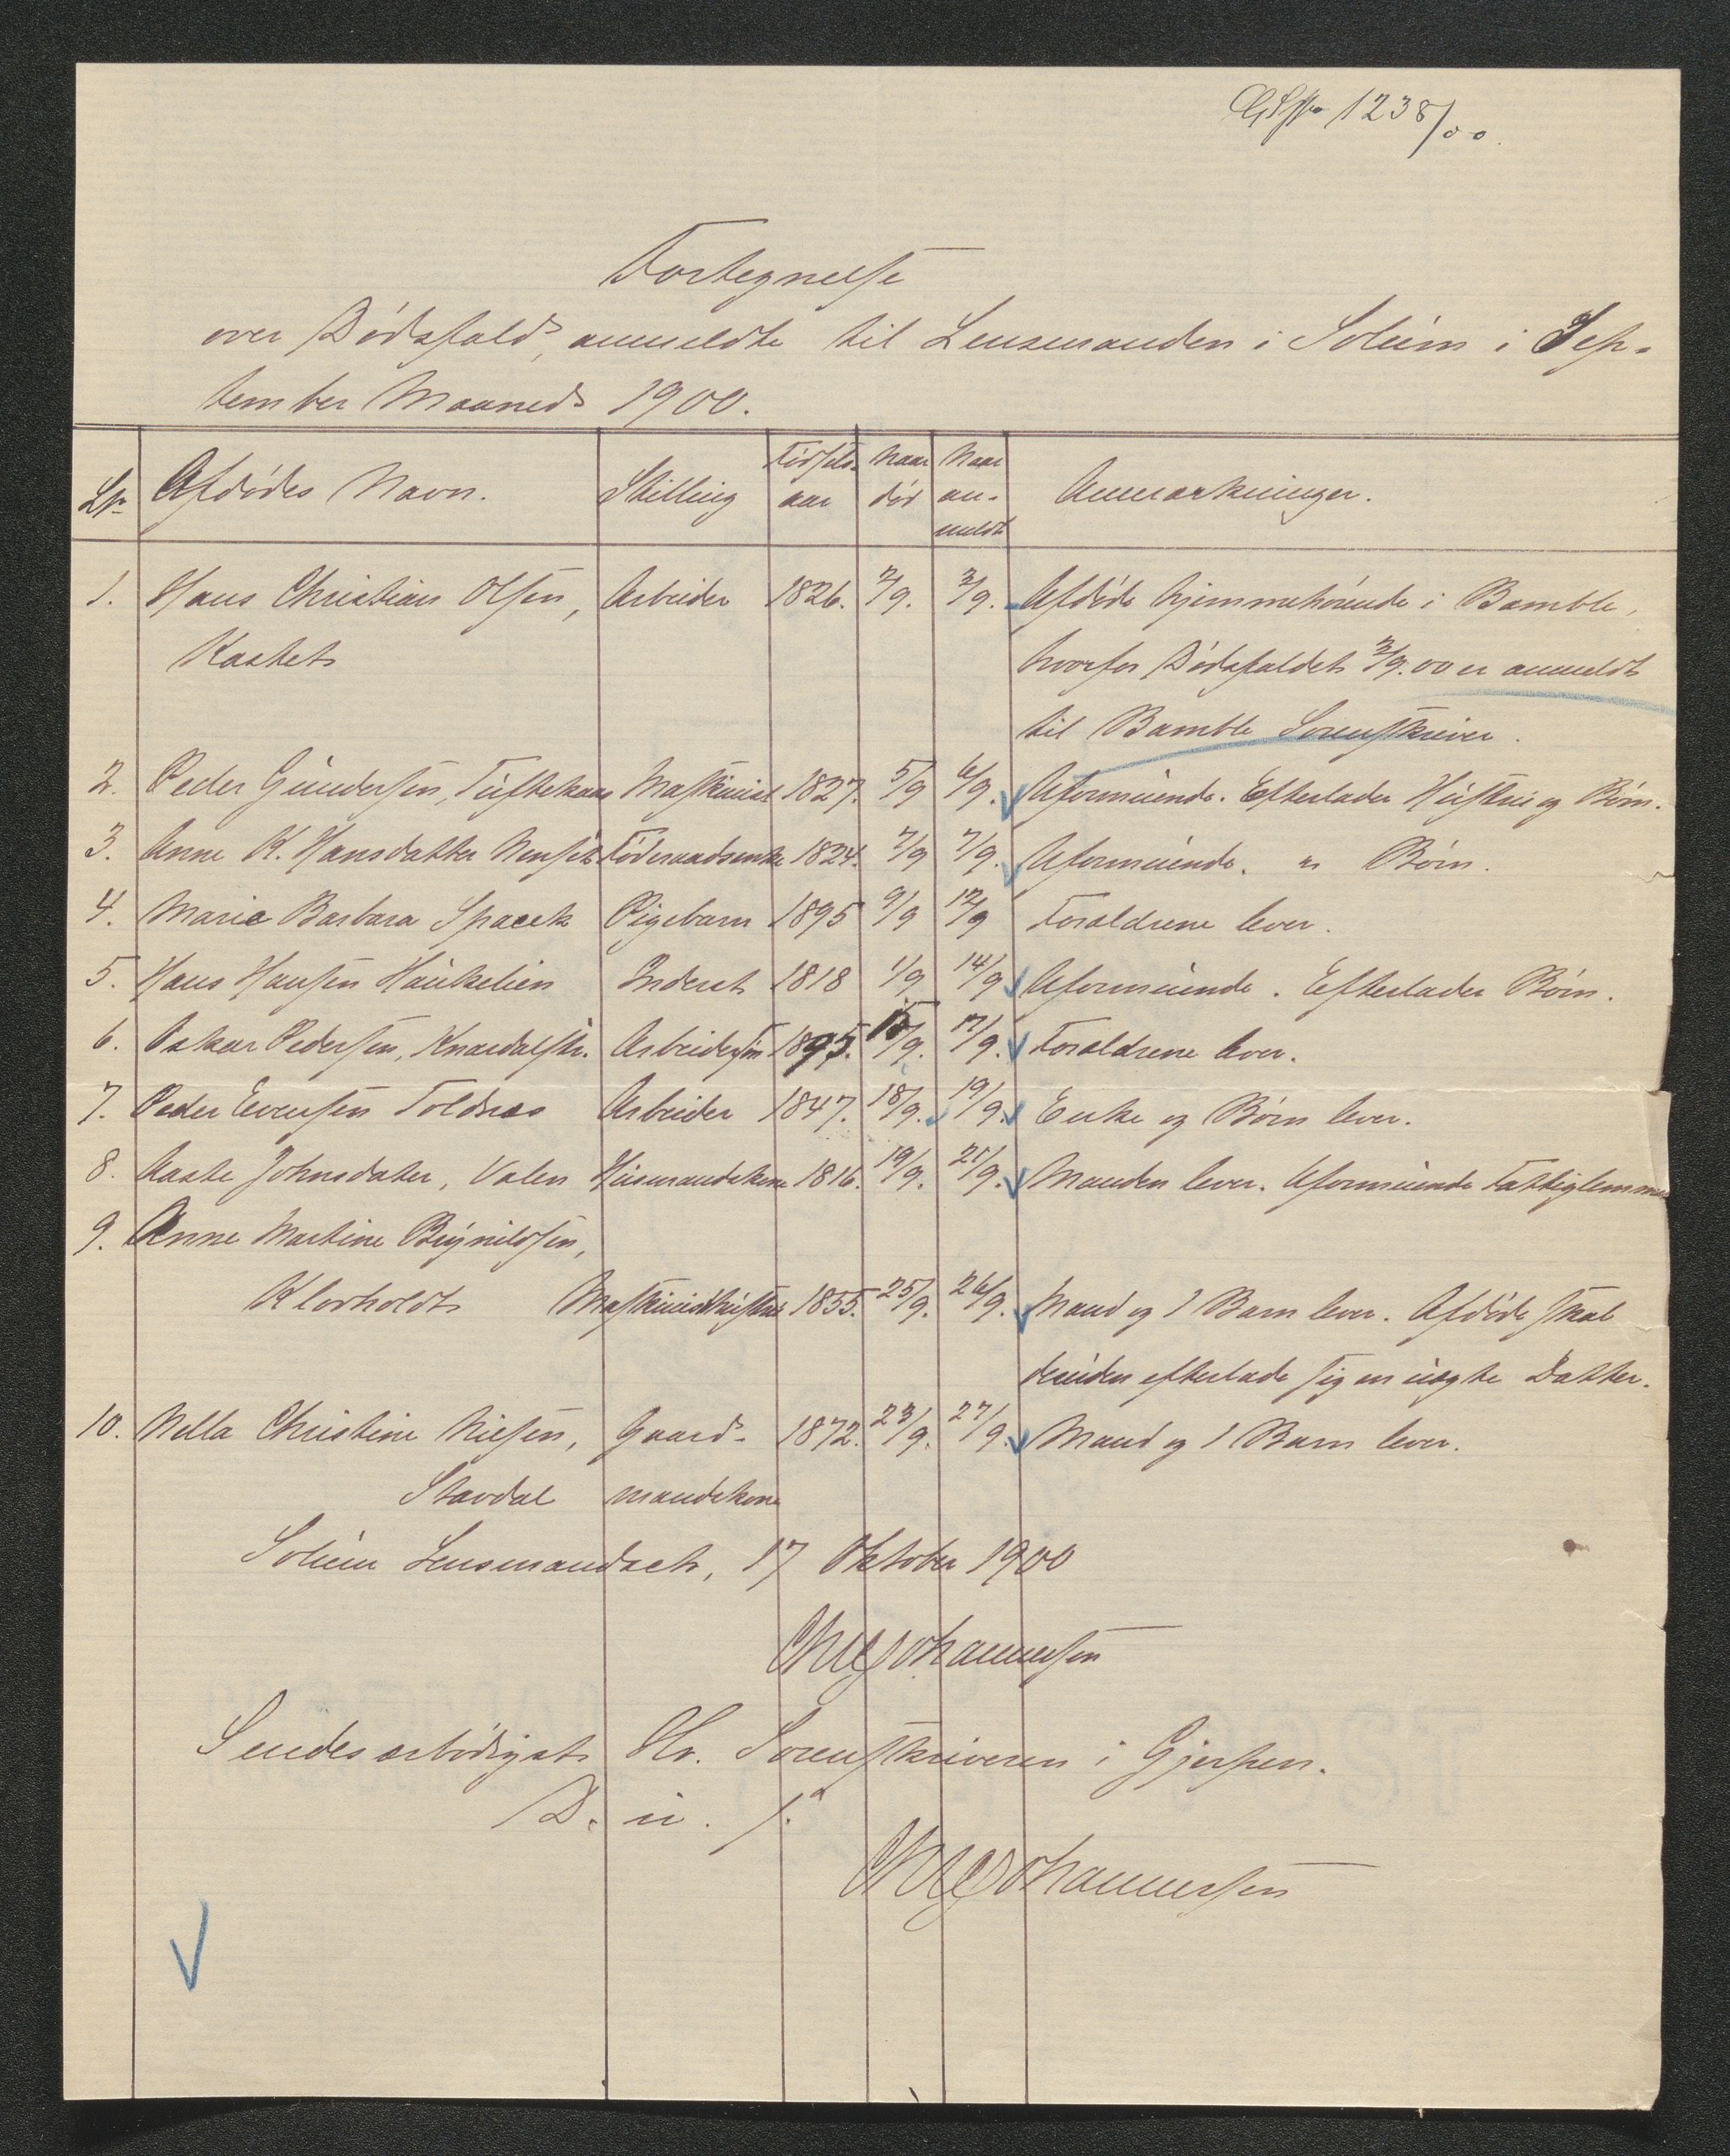 1238/00.
Fortegnelse
over Dødsfald, anmeldte til Lensmanden i Solum i Sep-
tember Maaned 1900.
Lnr Afdødes Navn. Stilling Fødsels- aar Naar død Naar an- meldt Anmærkninger.
1. Hans Christian Olsen, Arbeider 1826. 2/9. 3/9. Afdøde hjemmehørende i Bamble,
Kastet hvorfor Dødsfaldet 3/9.00 er anmeldt
til Bamble Sorenskriver.
2. Peder Gundersen, Tuftekaas Maskinist 1827. 5/9 6/9. Uformuende. Efterlader Hustru og Børn.
3. Anne K. Hansdatter Nenset Føderaadsenke 1824. 7/9 7/9. Uformuende. " Børn.
4. Marie Barbara Spacek Pigebarn 1895 9/9 12/9 Forældrene lever.
5. Hans Hansen Haukelien Inderst 1818 1/9 14/9 Uformuende. Efterlader Børn.
6. Oskar Pedersen, Knardalstr. Arbeidersøn 1895. 15/9. 17/9. Forældrene lever.
7. Peder Evensen Toldnæs Arbeider 1847. 18/9. 19/9. Enke og Børn lever.
8. Aaste Johnsdater, Valen Husmandskone 1816. 19/9. 21/9. Manden lever. Uformuende Fattiglemmer
9. Anne Martine Brynildsen,
Klovholdt Maskinisthustru 1855. 25/9. 26/9. Mand og 1 Barn lever. Afdøde skal
desuden efterlade sig en uægte Datter.
10. Nella Christine Nilsen, Gaard- 1872. 23/9. 27/9. Mand og 1 Barn lever.
Stavdal mandskone
Solum Lensmandsct, 17 Oktober 1900
Johannessen
Sendes ærbødigst Hr. Sorenskriveren i Gjerpen.
D. u. s.
Johannessen